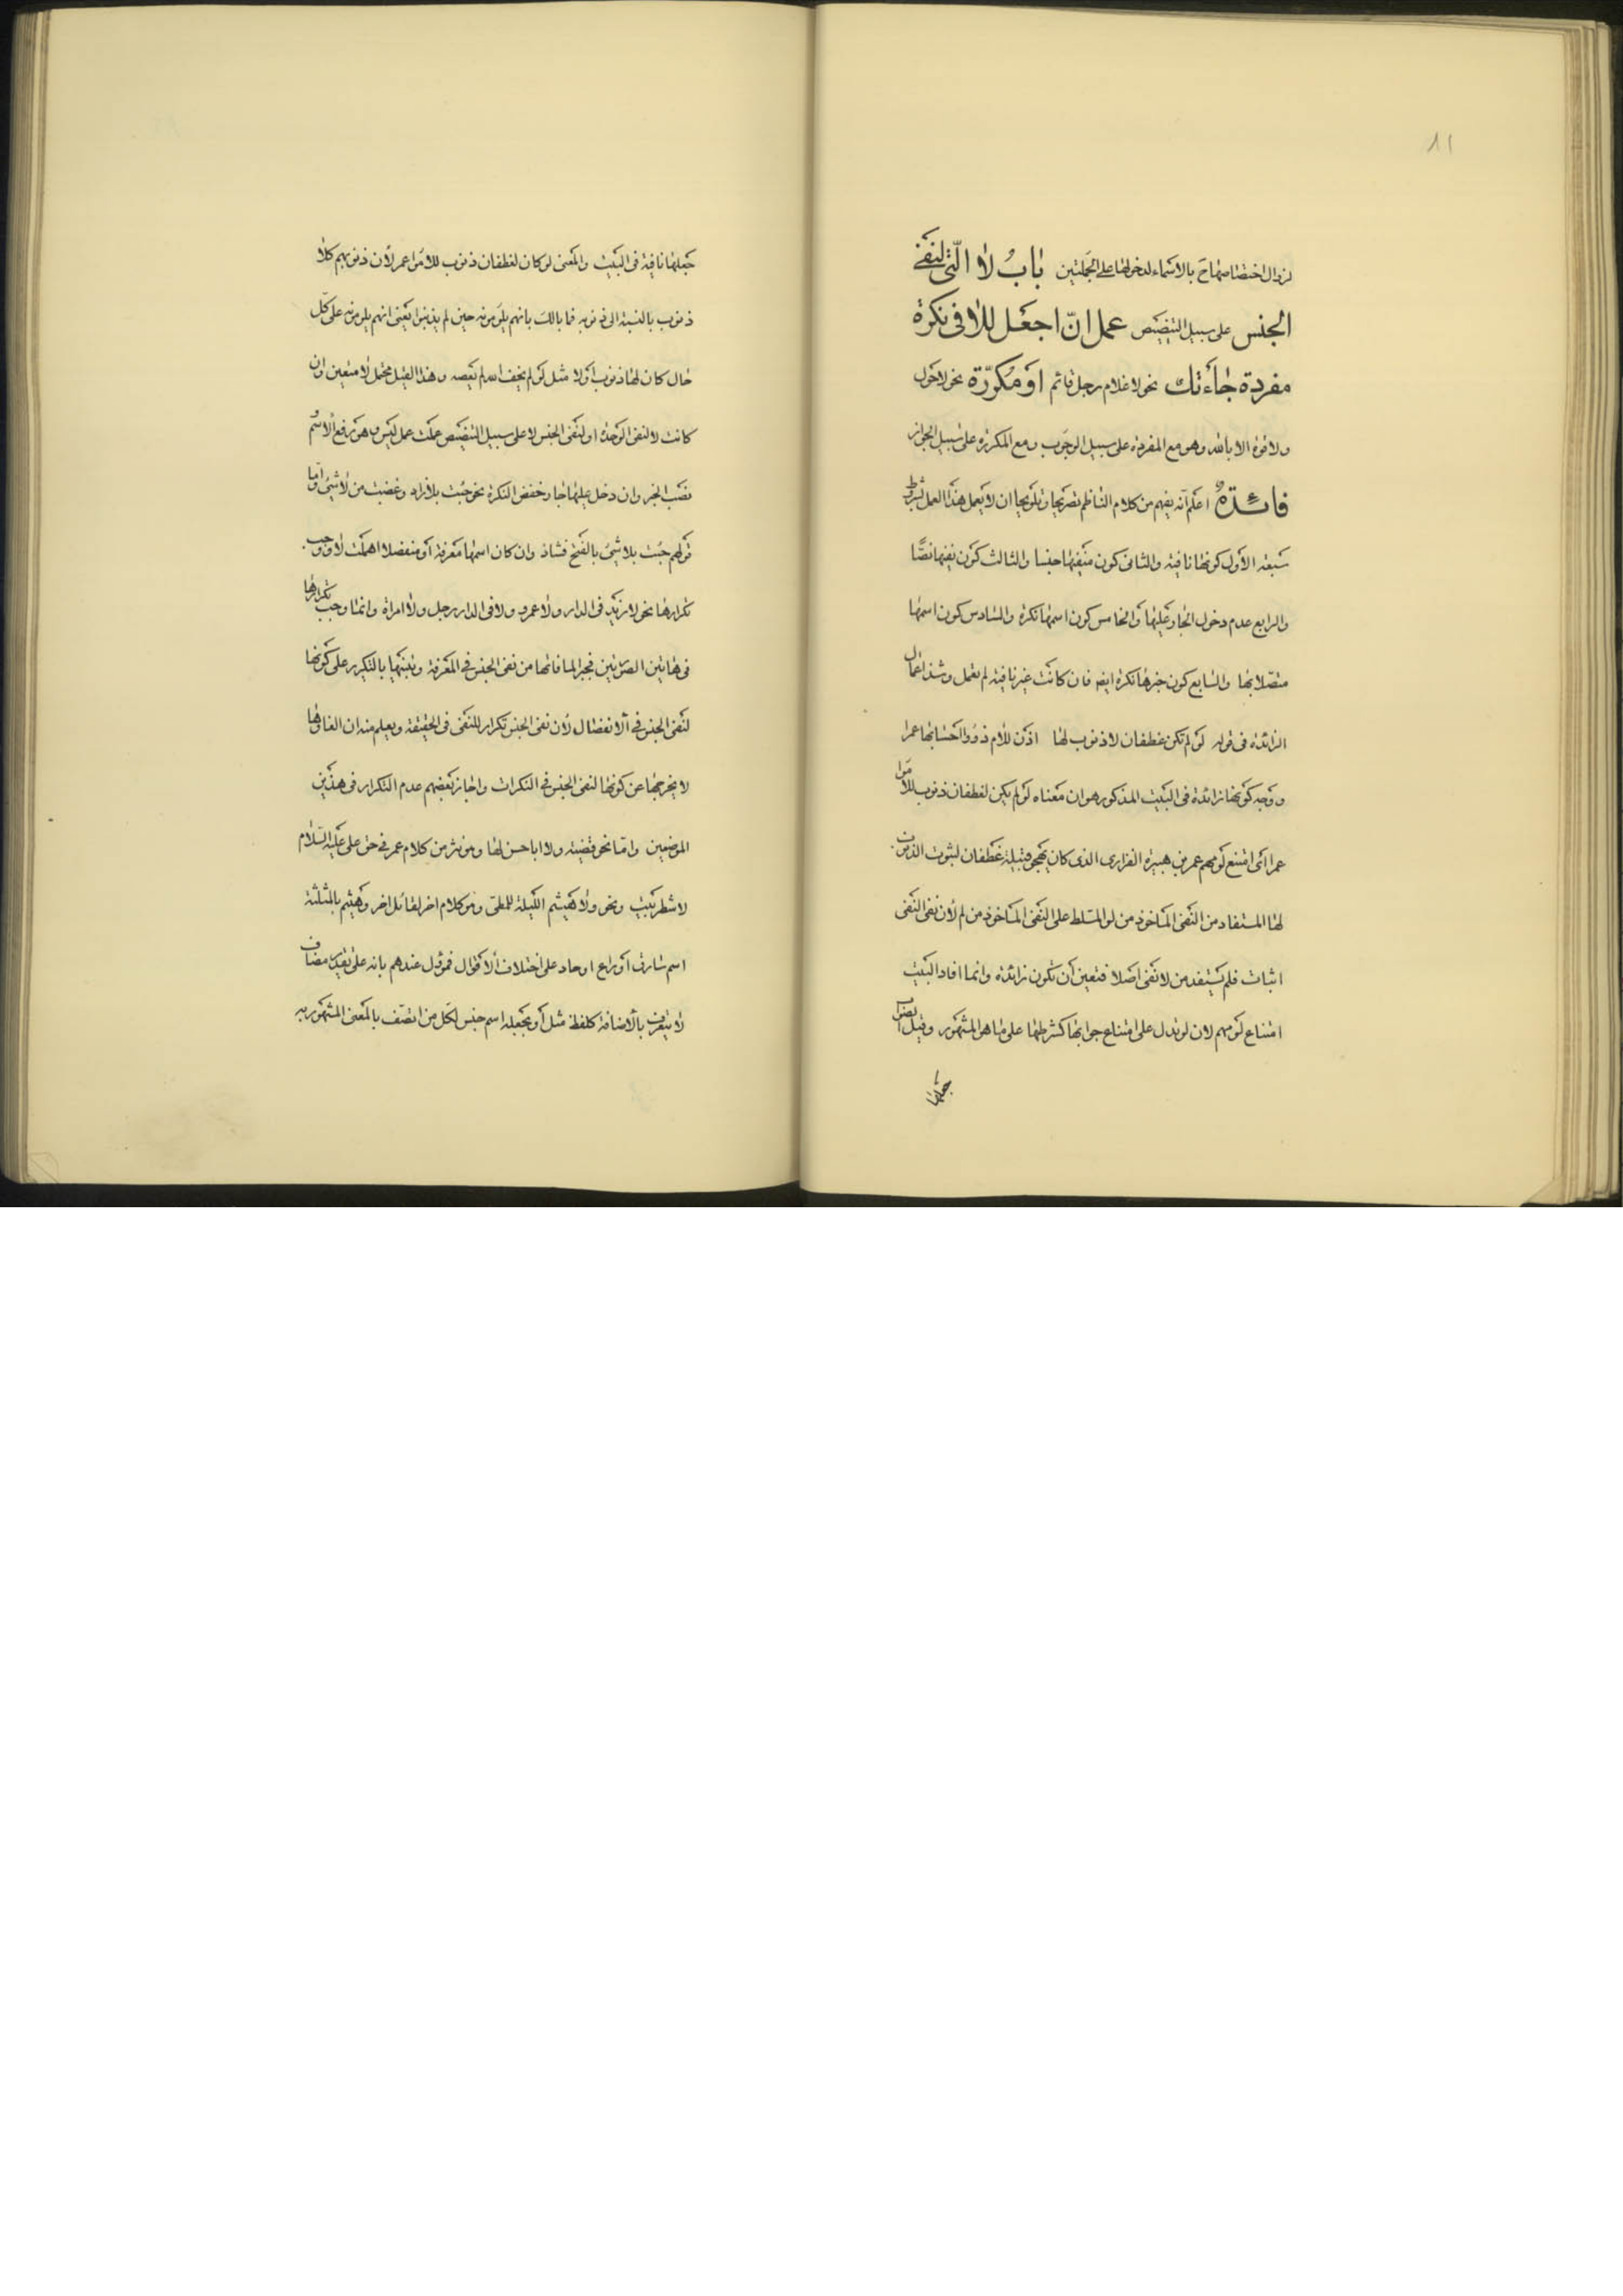 ٨١
لزوال اختصاصها ح بالاسماء لدخولها على الجملتين بابُ لا الّتى لنفى
الجنس على سبيل التنصيص عمل انّ اجعل للا فى نكرة
مفردة جاءتك نحو لا غلام رجل قائم او مُكرّرة نحو لا حول
ولا قوة الا بالله وهو مع المفردة على سبيل الوجوب ومع المكررة على سبيل الجواز
فائدةٌ اعلم انّه يفهم من كلام الناظم تصريحا وتلويحا ان لا يعمل هذا العمل بشروط
سبعة الاول كونها نافية والثانى كون منفيها جنسا والثالث كون نفيها نصًّا
والرابع عدم دخول الجار عليها والخامس كون اسمها نكرة والسادس كون اسمها
متصلا بها والسابع كون خبرها نكرة ايضا فان كانت غير نافية لم تعمل وشذ اعمال
الزائدة فى قوله لو لم تكن غطفان لا ذنوب لها اذن للام ذوو احسابها عمرا
ووجه كونها زائدة فى البيت المذكور هو ان معناه لو لم يكن لغطفان ذنوب للاموا
عمرا اى امتنع لومهم عمر بن هبيرة الفزارى الذى كان يهجو قبيلة غطفان لثبوت الذنوب
لها المستفاد من النفى المأخوذ من لو المسلط على النفى المأخوذ من لم لان نفى النفى
اثبات فلم يستفد من لا نفى اصلا فتعين ان تكون زائدة وانما افاد البيت
امتناع لومهم لان لو تدل على امتناع جوابها كشرطها على ما هو المشهور وقيل
جعلها
جعلها نافية فى البيت والمعنى لو كان لغطفان ذنوب للاموا عمر لان ذنوبهم كلا
ذنوب بالنسبة الى ذنوبه فما بالك بانهم يلومونه حين لم يذنبوا يعنى انهم يلومونه على كل
حال كان لها ذنوب اولا مثل لو لم يخف الله لم يعصه وهذا القيل محتمل لا متعين وان
كانت لا لنفى الوحدة او لنفى الجنس لا على سبيل التنصيص عملت عمل ليس وهو رفع الاسم
نصب الخبر وان دخل عليها جار خفض النكرة نحو جئت بلا زاد وغضبت من لا شئ وامّا
قولهم جئت بلا شئ بالفتح فشاذ وان كان اسمها معرفة او منفصلا اهملت لا ووجب
تكرارها نحو لا زيد فى الدار ولا عمرو ولا فى الدار رجل ولا امراة وانما وجب تكرارها
فى هاتين الصورتين فجبرا لما فاتها من نفى الجنس فى المعرفة وتنبيها بالتكرير على كونها
لنفى الجنس فى الانفصال لان نفى الجنس تكرار للنفى فى الحقيقة ويعلم منه ان الغاؤها
لا يخرجها عن كونها لنفى الجنس فى النكرات واجاز بعضهم عدم التكرار فى هذين
الموضعين وامّا نحو قضية ولا ابا حسن لها وهو نثر من كلام عمر فى حق على عليه السّلام
لا شطر بيت ونحو ولا هيثم الليلة للمطى وهو كلام اخر لقائل اخر وهيثم بالمثلثة
اسم سارق او راع او حاد على اختلاف الاقوال فمؤول عندهم بانه على تقدير مضاف
لا يتعرف بالاضافة كلفظ مثل او بجعله اسم جنس لكل من اتصف بالمعنى المشهور به